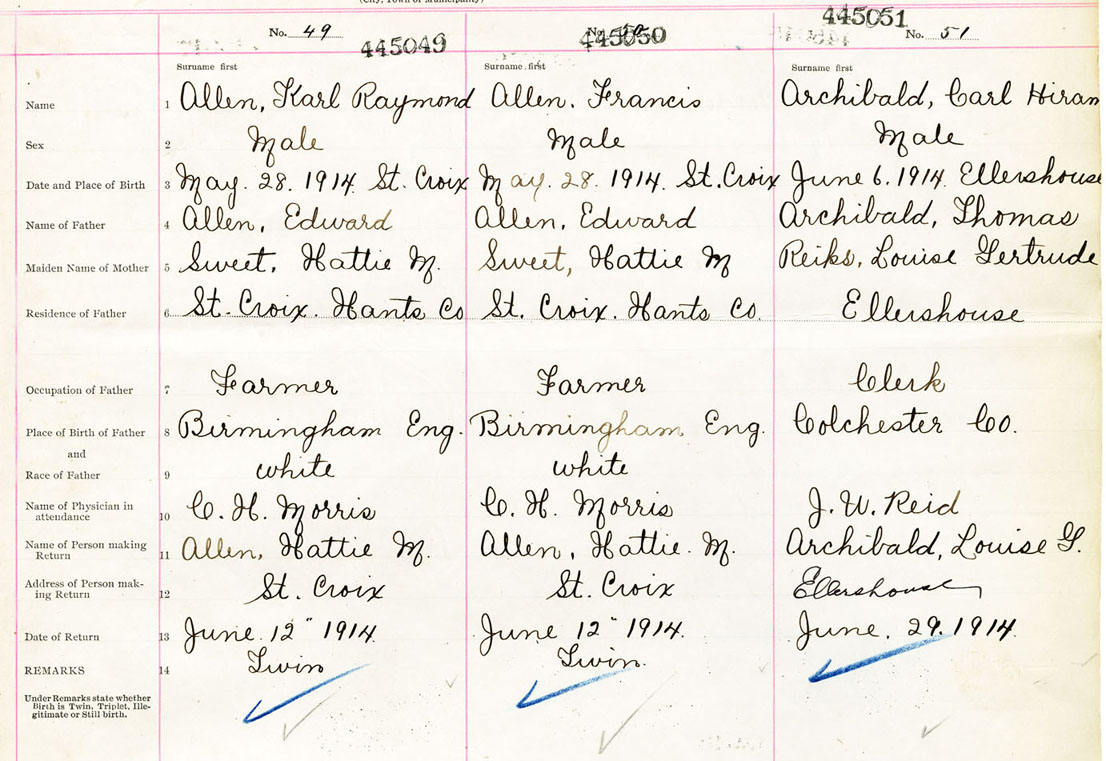 (City, Town or Municipality)
445051
No. 49 No. 50 No. 51
445049 445050
Surname first Surname first Surname first
Name 1 Allen, Karl Raymond Allen. Francis Archibald, Carl Hiram
Sex 2 Male Male Male
Date and Place of Birth 3 May. 28. 1914. St. Croix May. 28. 1914. St. Croix June 6. 1914. Ellershouse
Name of Father 4 Allen, Edward Allen, Edward Archibald, Thomas
Maiden Name of Mother 5 Sweet, Hattie M. Sweet, Hattie M Reiks, Louise Gertrude
Residence of Father 6 St. Croix. Hants Co St. Croix. Hants Co. Ellershouse
Occupation of Father 7 Farmer Farmer Clerk
Place of Birth of Father 8 Birmingham Eng. Birmingham Eng. Colchester Co.
and
Race of Father 9 white white
Name of Physician in
attendance 10 C. H. Morris C. H. Morris J. W. Reid
Name of Person making
Return 11 Allen, Hattie M. Allen, Hattie. M. Archibald, Louise G.
Address of Person mak-
ing Return 12 St. Croix St. Croix Ellershouse
Date of Return 13 June. 12" 1914. June 12" 1914. June. 29. 1914.
REMARKS 14 Twin Twin.
Under Remarks state whether
Birth is Twin, Triplet, Ille-
gitimate or Still birth.